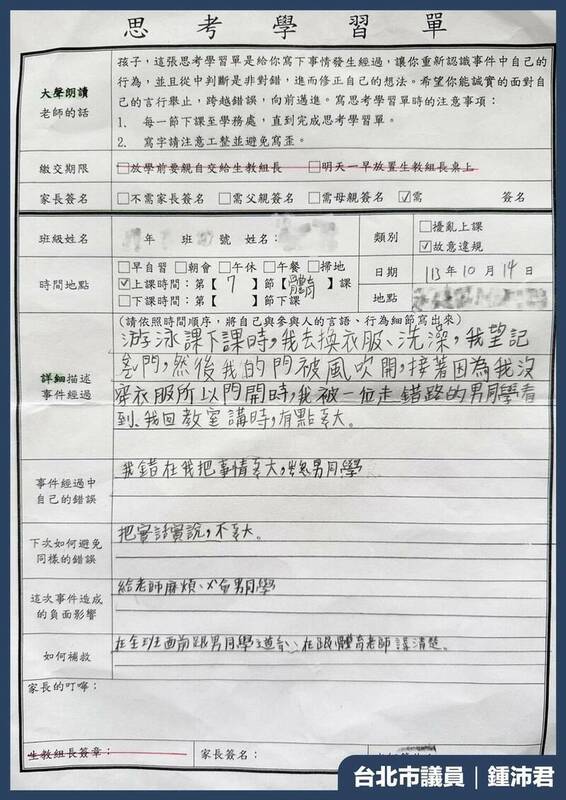 思考學習單
大聲朗讀
老師的話
孩子，這張思考學習單是給你寫下事情發生經過，讓你重新認識事件中自己的
行為，並且從中判斷是非對錯，進而修正自己的想法。希望你能誠實的面對自
己的言行舉止，跨越錯誤，向前邁進。寫思考學習單時的注意事項：
1. 每一節下課至學務處，直到完成思考學習單。
2. 寫字請注意工整並避免寫歪。
繳交期限
□放學前要親自交給生教組長 □明天一早放置生教組長桌上
家長簽名
□不需家長簽名 □需父親簽名 □需母親簽名 ☑需 簽名
班級姓名
年 班 號 姓名：
類別
□擾亂上課
☑故意違規
時間地點
□早自習 □朝會 □午休 □午餐 □掃地
☑上課時間：第【 7 】節【體育】課
□下課時間：第【 】節下課
日期
113年10月14日
地點
詳細描述
事件經過
(請依照時間順序，將自己與參與人的言語、行為細節寫出來)
游泳課下課時，我去換衣服、洗澡，我望記
關門，然後我的門被風吹開，接著因為我沒
穿衣服所以門開時，我被一位走錯路的男同學看
到、我回教室講時，有點ㄎㄨㄚ大。
事件經過中
自己的錯誤
我錯在我把事情ㄎㄨㄚ大，男同學
下次如何避免
同樣的錯誤
把實話實說，不ㄎㄨㄚ大。
這次事件造成
的負面影響
給老師麻煩、男同學
如何補救
在全班面前跟男同學道、在跟體育老師講清楚。
家長的叮嚀：
生教組長簽章：
家長簽名：
台北市議員｜鍾沛君